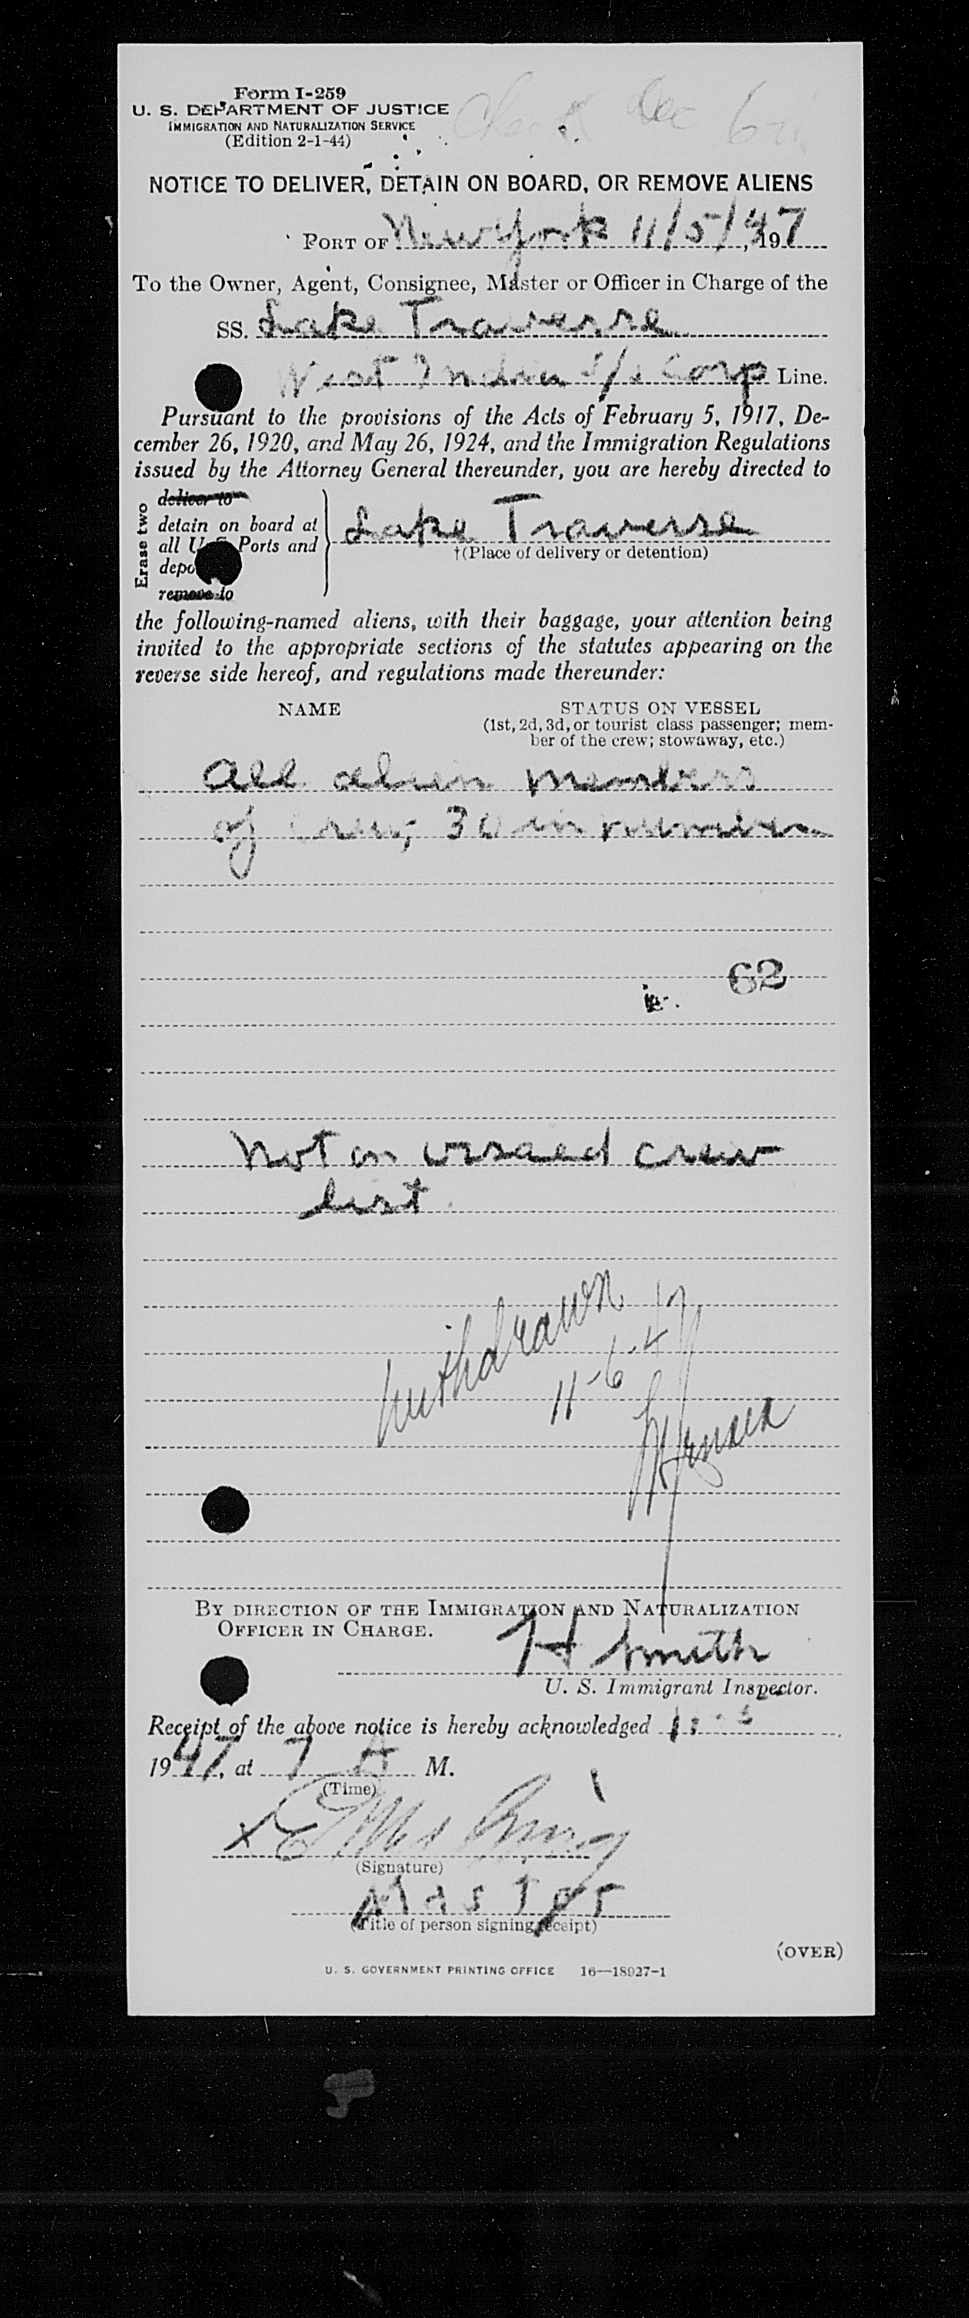 Form I-259
U. S. DEPARTMENT OF JUSTICE
IMMIGRATION AND NATURALIZATION SERVICE
(Edition 2-1-44)
Dec 6
NOTICE TO DELIVER, DETAIN ON BOARD, OR REMOVE ALIENS
PORT OF New York 11/5/47, 197
To the Owner, Agent, Consignee, Master or Officer in Charge of the
SS. Lake Traverse
West India S/S Corp Line.
Pursuant to the provisions of the Acts of February 5, 1917, De-
cember 26, 1920, and May 26, 1924, and the Immigration Regulations
issued by the Attorney General thereunder, you are hereby directed to
Erase two
deliver to
detain on board at
all U. S. Ports and
depo
remove to
Lake Traverse
†(Place of delivery or detention)
the following-named aliens, with their baggage, your attention being
invited to the appropriate sections of the statutes appearing on the
reverse side hereof, and regulations made thereunder:
NAME STATUS ON VESSEL
(1st, 2d, 3d, or tourist class passenger; mem-
ber of the crew; stowaway, etc.)
All alien members
of crew, 30 in number
62
Not on visaed crew
list.
Withdrawn
11-6-47
BY DIRECTION OF THE IMMIGRATION AND NATURALIZATION
OFFICER IN CHARGE.
H Smith
U. S. Immigrant Inspector.
Receipt of the above notice is hereby acknowledged 11-5
1947, at 7 A M.
(Time)
x
(Signature)
Master
(Title of person signing receipt)
(OVER)
U. S. GOVERNMENT PRINTING OFFICE 16—18927-1